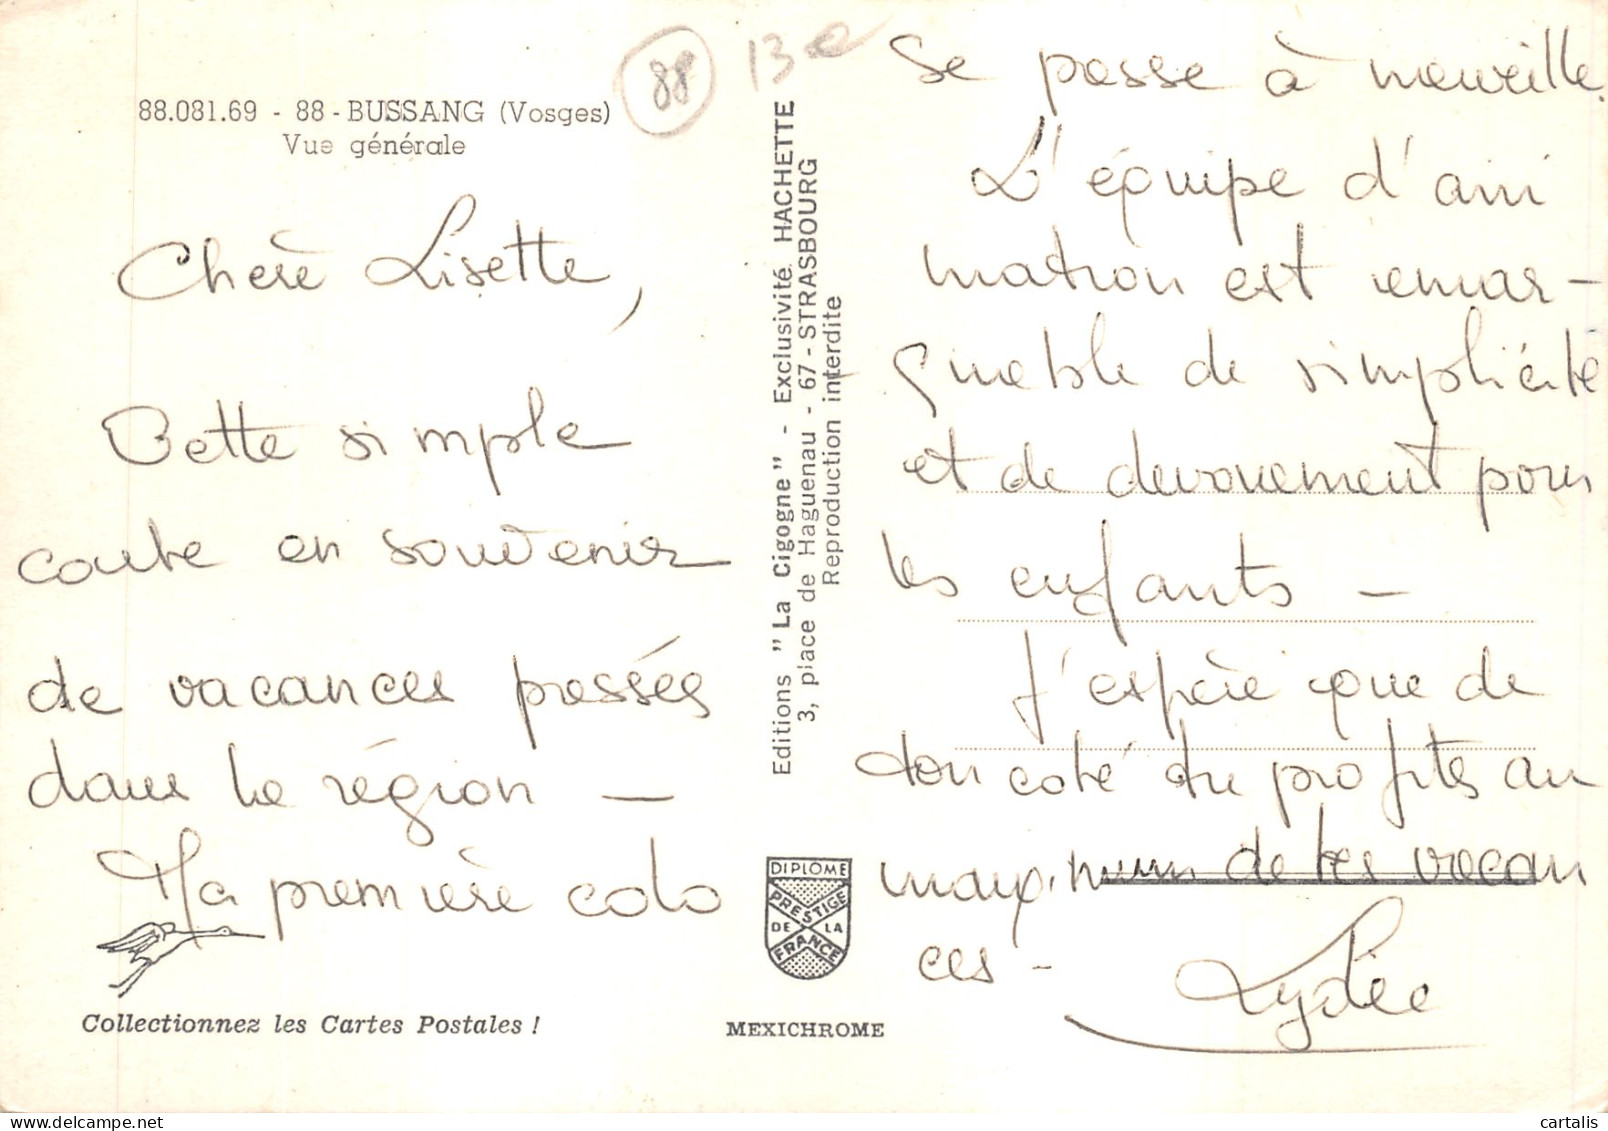 88.081.69 - 88 - BUSSANG (Vosges)
Vue générale
88
13e
Chère Lisette,
Cette simple
carte en souvenir
de vacances passées
dans la région —
Ma première colo
Collectionnez les Cartes Postales !
Editions "La Cigogne" - Exclusivité HACHETTE
3, place de Haguenau - 67 - STRASBOURG
Reproduction interdite
DIPLOME
PRESTIGE
DE LA
FRANCE
MEXICHROME
se passe à merveille.
L'équipe d'ani
mation est remar-
quable de simplicité
et de devouement pour
les enfants —
J'espère que de
ton coté tu profites au
maximum de tes vacan
ces -
Lydie
cartalis